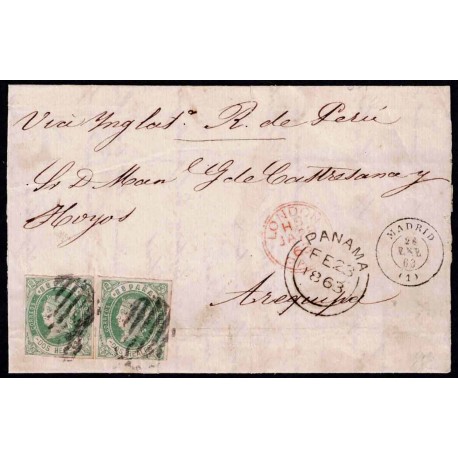 Via Inglat.ª R. de Perú
Sr D. Man.l G de Castresana y
Hoyos
LONDON
PANAMA
FE 23
1863
MADRID
26
ENE
63
(1)
Arequipa
ESPAÑA
DOS RS
ESPAÑA